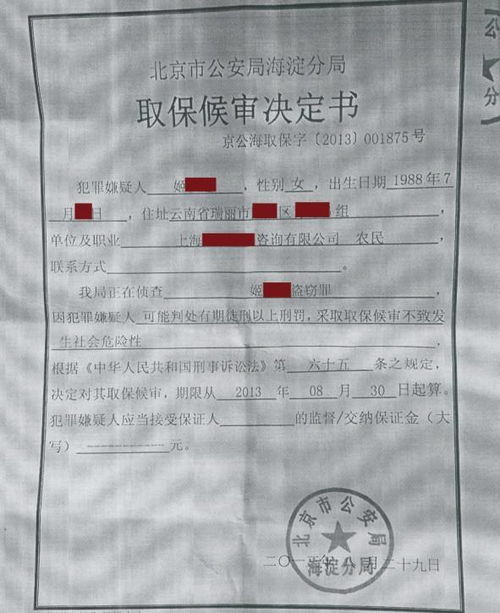 北京市公安局海淀分局
取保候审决定书
京公海取保字〔2013〕001875号
犯罪嫌疑人 姬 ，性别 女 ，出生日期 1988 年 7
月 日 ，住址云南省瑞丽市 区 组 ，
单位及职业 上海 咨询有限公司 农民 ，
联系方式 。
我局正在侦查 姬 盗窃罪 ，
因犯罪嫌疑人 可能判处有期徒刑以上刑罚，采取取保候审不致发
生社会危险性 ，
根据《中华人民共和国刑事诉讼法》第 六十五 条之规定，
决定对其取保候审，期限从 2013 年 08 月 30 日起算。
犯罪嫌疑人应当接受保证人 的监督/交纳保证金（大
写） 元。
北京市公安局
海淀分局
二〇一 年八月二十九日
公
分